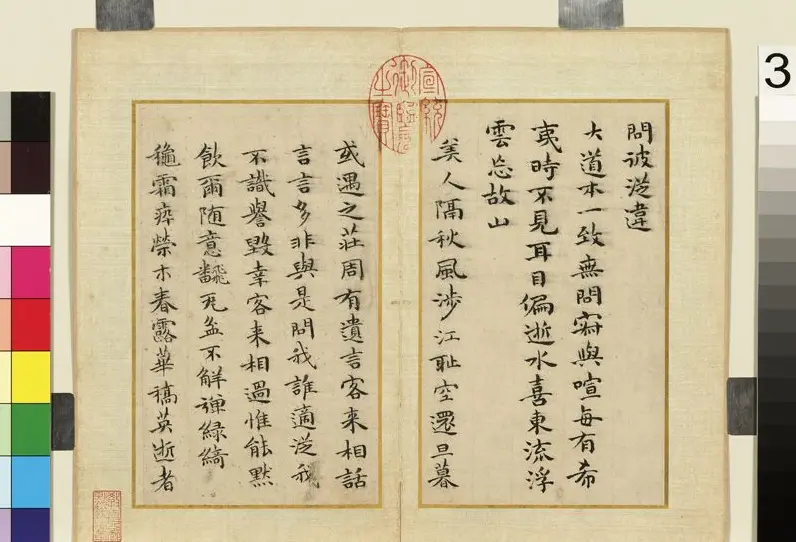 問彼從違
大道本一致無問寂與喧每有希
夷時不見耳目偏逝水喜東流浮
雲忘故山
美人隔秋風涉江耻空還旦暮
或遇之莊周有遺言客来相話
言言多非與是問我誰適從我
不識譽毀幸客来相過惟能默
飲爾随意翻瓦盆不解彈緑綺
穐霜瘁榮木春露華稿英逝者
宣統
御覽
之寶
3